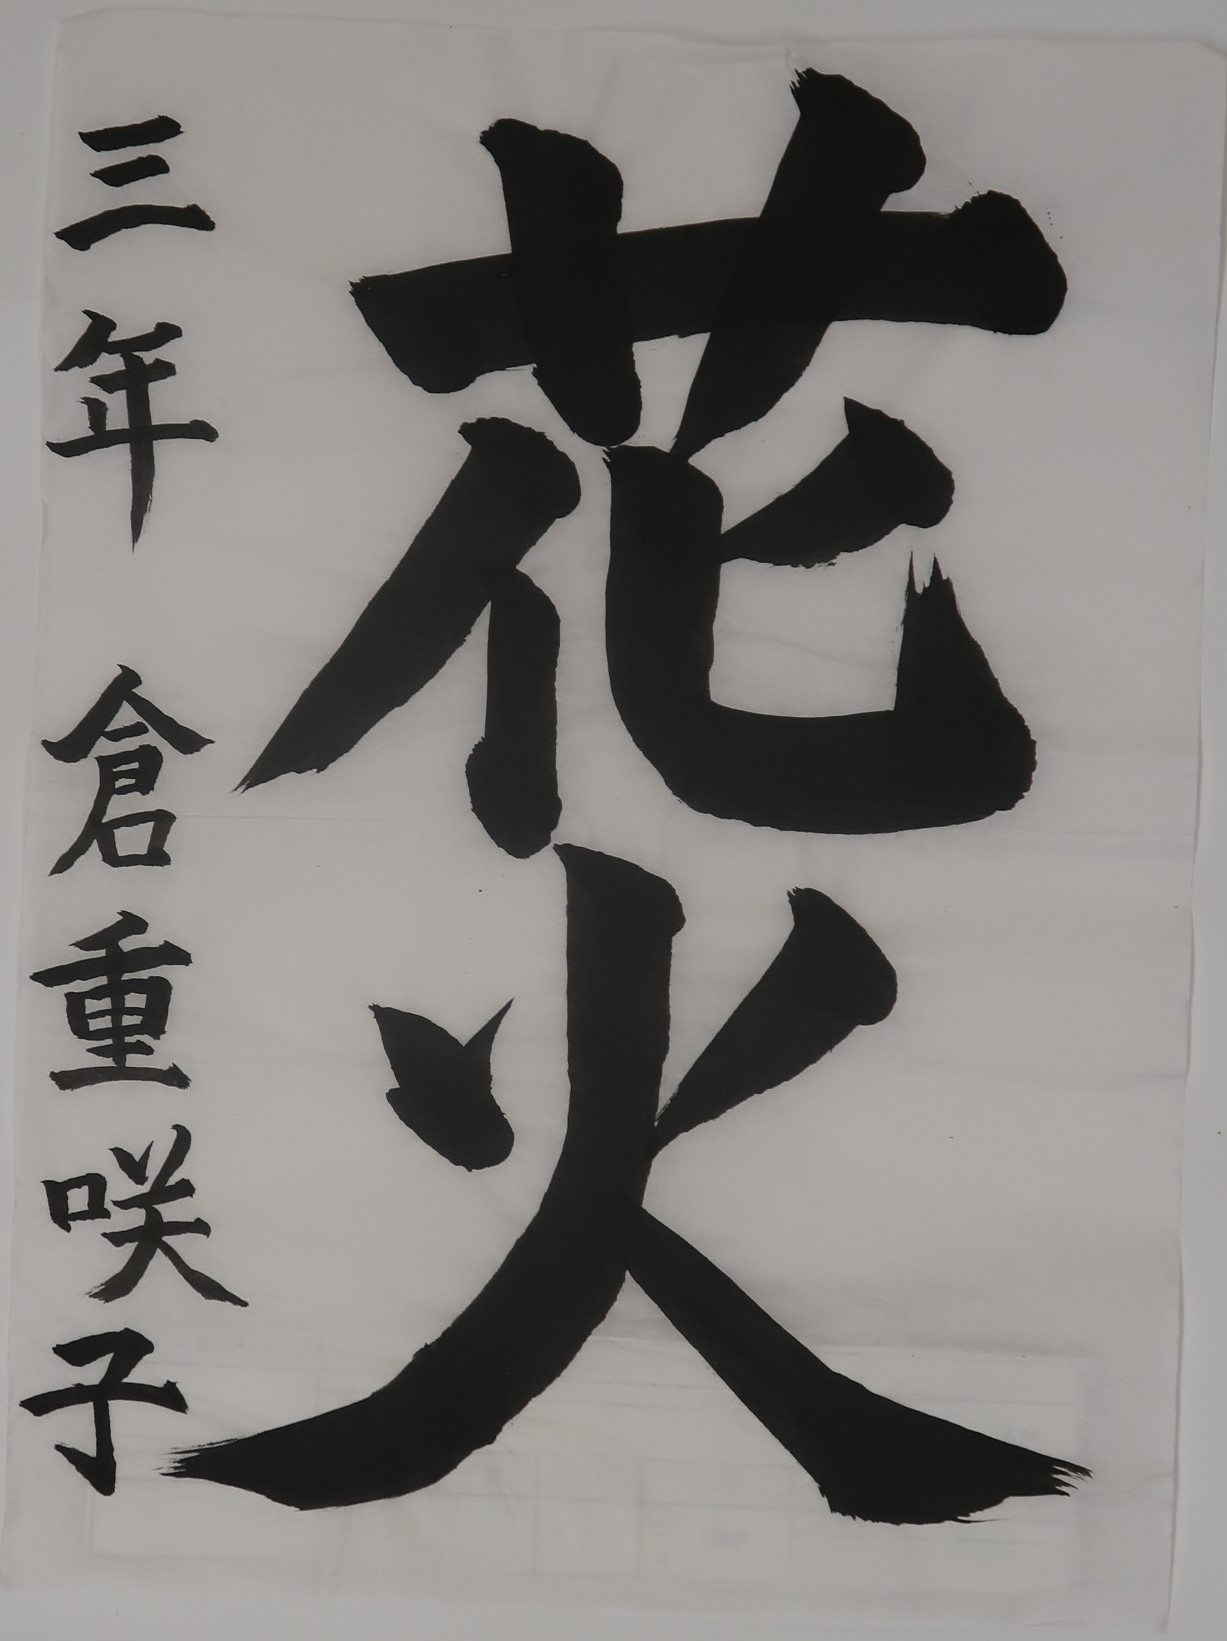 花火
三年 倉重咲子